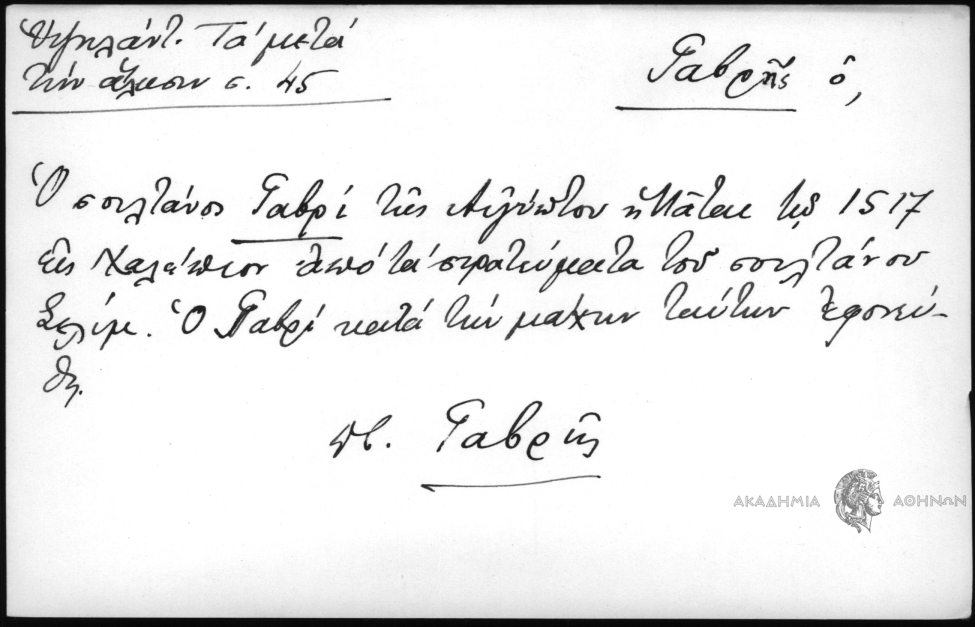 Ὑψηλάντ. Τὰ μετὰ
τὴν ἅλωσιν σ. 45
Γαβρῆς ὁ,
Ὁ σουλτάνος Γαβρὶ τῆς Αἰγύπτου ἡττᾶται τῷ 1517
εἰς Χαλέπιον ὑπὸ τὰ στρατεύματα τοῦ σουλτάνου
Σελίμ. Ὁ Γαβρὶ κατὰ τὴν μάχην ταύτην ἐφονεύ-
θη.
πβ. Γαβρῆς
ΑΚΑΔΗΜΙΑ ΑΘΗΝΩΝ